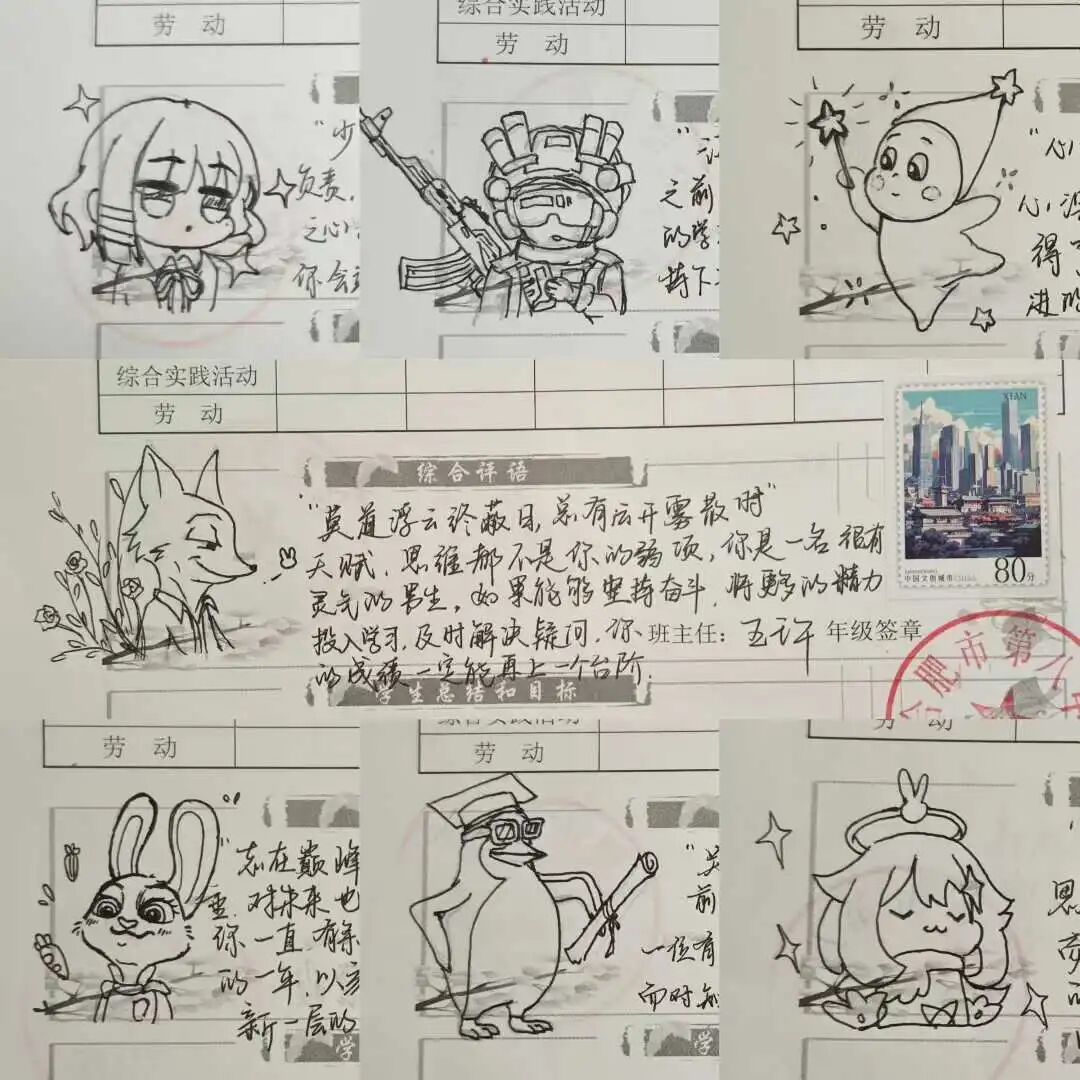 劳 动
"少
负责,
之心
你会
综合实践活动
劳 动
之前
的学
持下
劳 动
"心
心
得
进的
综合实践活动
劳 动
XI'AN
中国文创城市
80分
综合评语
"莫道浮云终蔽日,总有云开雾散时"
天赋、思维都不是你的弱项,你是一名很有
灵气的男生,如果能够坚持奋斗,将更多的精力
投入学习,及时解决疑问,你
班主任: 王玗 年级签章
的成绩一定能再上一个台阶.
学生总结和目标
合肥市第八中
劳 动
"志在巅峰
对未来也
你一直有
的一年,以
新一层的
学
综合实践活动
劳 动
前
一位有
而时
学
劳 动
思